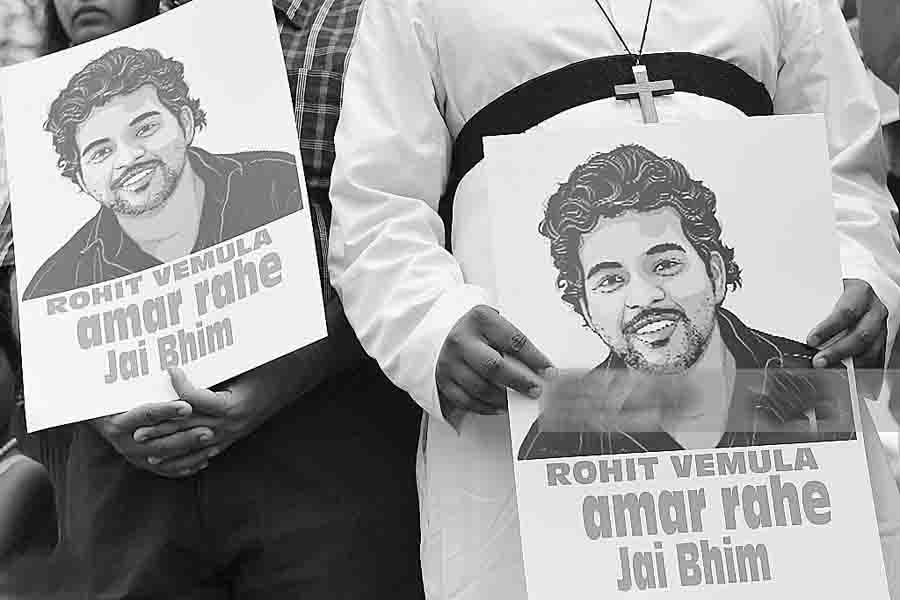 ROHIT VEMULA
amar rahe
Jai Bhim
ROHIT VEMULA
amar rahe
Jai Bhim